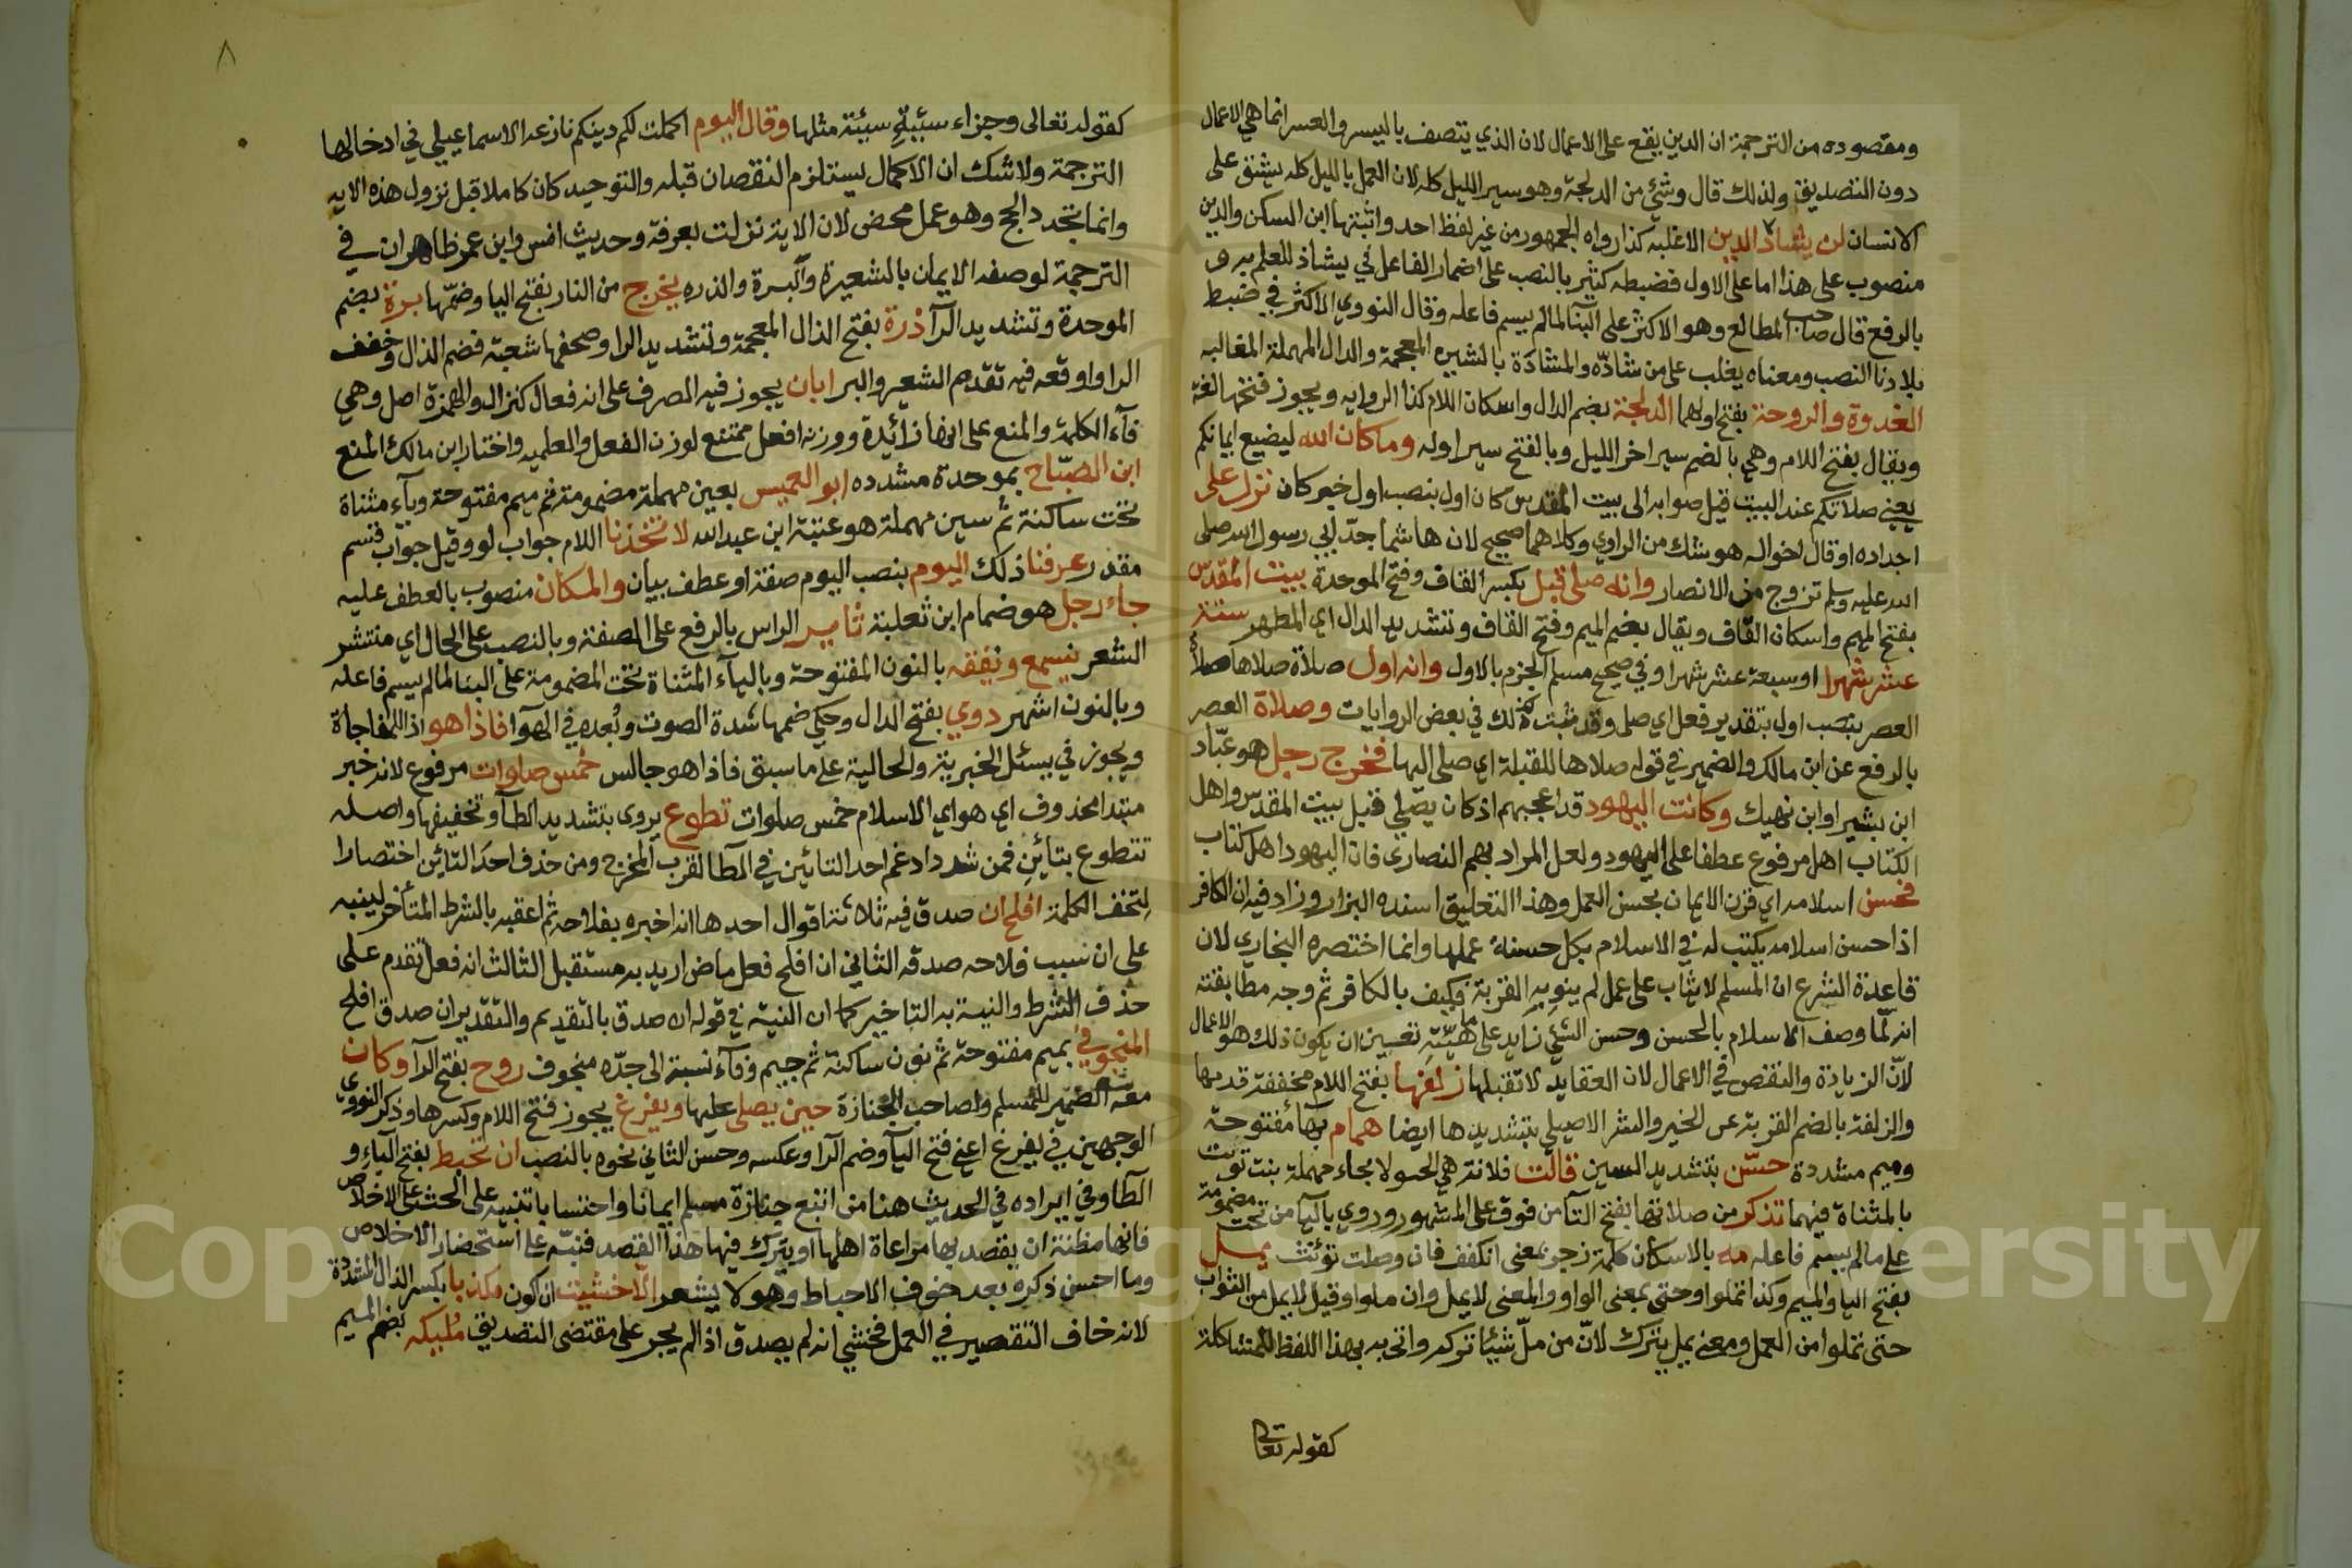 ومقصوده من الترجمة ان الدين يقع على الاعمال لان الذي يتصف باليسر والعسر انما هي الاعمال
دون التصديق ولذلك قال وشئ من الدلجة وهو سير الليل كله لان العمل بالليل كله يشق على
الانسان لن يشاد الدين الا غلبه كذا رواه الجمهور من غير لفظ احد واثبتها ابن السكن والدين
منصوب على هذا اما على الاول فضبطه كثير بالنصب على اضمار الفاعل في يشاد للعلم به و
بالرفع قال صاحب المطالع وهو الاكثر على البنا لما لم يسم فاعله وقال النووي الاكثر في ضبط
بلادنا النصب ومعناه يغلب على من شاده والمشادة بالشين المعجمة والدال المهملة المغالبه
الغدوة والروحة بفتح اولهما الدلجة بضم الدال واسكان اللام كذا الروايه ويجوز فتحها لغة
ويقال بفتح اللام وهي بالضم سير اخر الليل وبالفتح سير اوله وما كان الله ليضيع ايمانكم
يعني صلاتكم عند البيت قيل صوابه الى بيت المقدس كان اول بنصب اول خبر كان نزل على
اجداده او قال اخواله هو شك من الراوي وكلاهما صحيح لان هاشما جد ابي رسول الله صلى
الله عليه وسلم تزوج من الانصار وانه صلى قبل بكسر القاف وفتح الموحدة بيت المقدس
بفتح الميم واسكان القاف ويقال بضم الميم وفتح القاف وتشديد الدال اي المطهر ستة
عشر شهرا او سبعة عشر شهرا وفي صحيح مسلم الجزم بالاول وانه اول صلاة صلاها صلاة
العصر بنصب اول بتقدير فعل اي صلى وقد ثبت كذلك في بعض الروايات وصلاة العصر
بالرفع عن ابن مالك والضمير في قوله صلاها للقبلة اي صلى اليها فخرج رجل هو عباد
ابن بشير او ابن نهيك وكانت اليهود قد اعجبهم اذ كان يصلي قبل بيت المقدس واهل
الكتاب اهل مرفوع عطفا على اليهود ولعل المراد بهم النصارى فان اليهود اهل كتاب
فحسن اسلامه اي قرن الايمان بحسن العمل وهذا التعليق اسنده البزار وزاد فيه ان الكافر
اذا حسن اسلامه يكتب له في الاسلام بكل حسنة عملها وانما اختصره البخاري لان
قاعدة الشرع ان المسلم لا يثاب على عمل لم ينو به القربة فكيف بالكافر ثم وجه مطابقته
انه لما وصف الاسلام بالحسن وحسن الشئ زايد على ماهيته تعين ان يكون ذلك هو الاعمال
لان الزيادة والنقص في الاعمال لان العقايد لا تقبلها زلفها بفتح اللام مخففة قدمها
والزلفة بالضم القربة عن الخير والشر الاصيلي بتشديدها ايضا همام بهاء مفتوحة
وميم مشددة حسن بتشديد السين قالت فلانة هي الحولا بحاء مهملة بنت تويت
بالمثناة فيهما تذكر من صلاتها بفتح التا من فوق على المشهور وروي باليا من تحت مضمومة
على ما لم يسم فاعله مه بالاسكان كلمة زجر بمعنى انكفف فان وصلت نونت يمل
بفتح اليا والميم وكذا تملوا وحتى بمعنى الواو والمعنى لا يمل وان ملوا وقيل لا يمل من الثواب
حتى تملوا من العمل ومعنى يمل يترك لان من مل شيئا تركه واتى به بهذا اللفظ للمشاكلة
كقوله تعالى
٨
كقوله تعالى وجزاء سيئة سيئة مثلها وقال اليوم اكملت لكم دينكم نازعه الاسماعيلي في ادخالها
الترجمة ولا شك ان الاكمال يستلزم النقصان قبله والتوحيد كان كاملا قبل نزول هذه الايه
وانما تجدد الحج وهو عمل محض لان الاية نزلت بعرفة وحديث انس وابن عمر ظاهران في
الترجمة لوصفه الايمان بالشعيرة والبرة والذره يخرج من النار بفتح اليا وضمها برة بضم
الموحدة وتشديد الرآ ذرة بفتح الذال المعجمة وتشديد الرا وصحفها شعبة فضم الذال وخفف
الرا واوقعه فيه تقدم الشعير والبر ابان يجوز فيه الصرف على انه فعال كغزال والهمزة اصل وهي
فآء الكلمة والمنع على انها زائدة ووزنه افعل ممتنع لوزن الفعل والعلميه واختار ابن مالك المنع
ابن الصباح بموحدة مشدده ابو العميس بعين مهملة مضمومة ثم ميم مفتوحة وياء مثناة
تحت ساكنة ثم سين مهملة هو عتبة ابن عبد الله لاتخذنا اللام جواب لو وقيل جواب قسم
مقدر عرفنا ذلك اليوم بنصب اليوم صفة او عطف بيان والمكان منصوب بالعطف عليه
جاء رجل هو ضمام ابن ثعلبة ثاير الراس بالرفع على الصفة وبالنصب على الحال اي منتشر
الشعر نسمع ونفقه بالنون المفتوحة وبالياء المثناة تحت المضمومة على البنا لما لم يسم فاعله
وبالنون اشهر دوي بفتح الدال وحكي ضمها شدة الصوت وبعده في الهوآ فاذا هو اذا للمفاجاة
ويجوز في يسئل الخبرية والحالية على ما سبق فاذا هو جالس خمس صلوات مرفوع لانه خبر
مبتدا محذوف اي هو اي الاسلام خمس صلوات تطوع يروى بتشديد الطآ وتخفيفها واصله
تتطوع بتائين فمن شدد ادغم احد التائين في الطآ لقرب المخرج ومن حذف احد التائين اختصارا
لتخف الكلمة افلح ان صدق فيه ثلاثة اقوال احدها انه اخبره بفلاحه ثم اعقبه بالشرط المتأخر لينبه
على ان سبب فلاحه صدقه الثاني ان افلح فعل ماض اريد به مستقبل الثالث انه فعل تقدم على
حذف الشرط والنية به التاخير كما ان النية في قوله ان صدق بالتقديم والتقدير ان صدق افلح
المنجوفي بميم مفتوحة ثم نون ساكنة ثم جيم وفآء نسبة الى جده منجوف روح بفتح الرآ وكان
معه الضمير للمسلم ولصاحب الجنازة حين يصلى عليها ويفرغ يجوز فتح اللام وكسرها وذكر النووي
الوجهين في يفرغ اعني فتح اليآ وضم الرا وعكسه وحسن الثاني نحوه بالنصب ان تحبط بفتح الياء و
الطا وفي ايراده في الحديث هنا من اتبع جنازة مسلم ايمانا واحتسابا تنبيه على الحث على الاخلاص
فانها مظنة ان يقصد بها مراعاة اهلها او يترك فيها هذا القصد فنبه على استحضار الاخلاص
وما احسن ذكره بعد خوف الاحباط وهو لا يشعر الا خشيت ان اكون مكذبا بكسر الذال المشددة
لانه خاف التقصير في العمل فخشي انه لم يصدق اذ لم يجر على مقتضى التصديق مليكه بضم الميم
Copyright © King Saud University